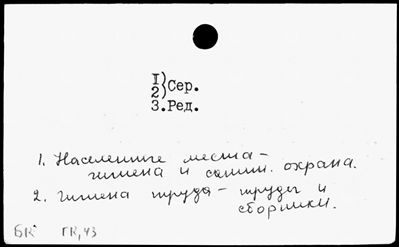 1)
2) Сер.
3. Ред.
1. Населенные места –
гигиена и санит. охрана.
2. Гигиена труда – труды и
сборники.
БК ГК,43